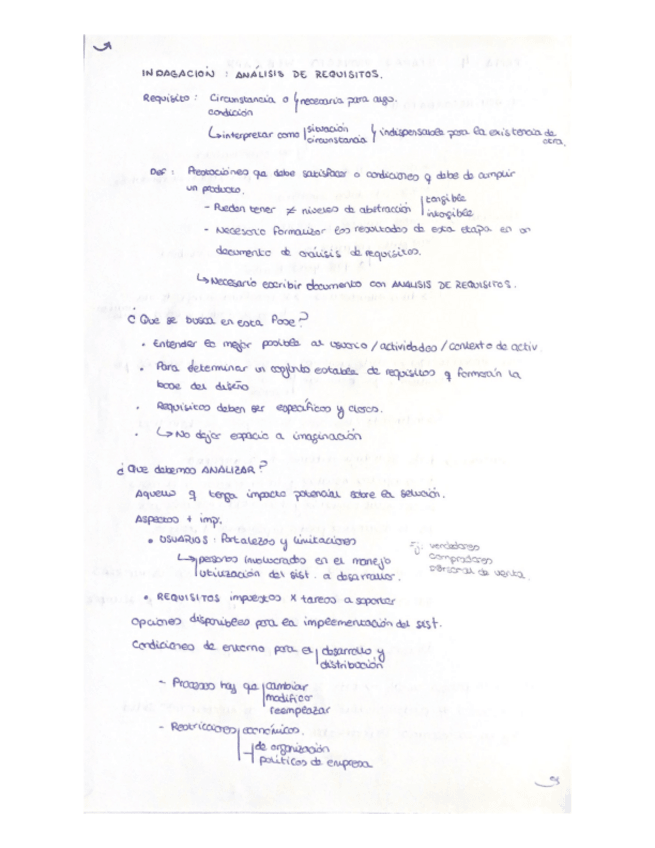 INDAGACIÓN : ANÁLISIS DE REQUISITOS.
Requisito : Circunstancia o necesaria para algo.
condición
↳ interpretar como situación indispensable para la existencia de
circunstancia otra.
Def : Prestaciones q debe satisfacer o condiciones q debe de cumplir
un producto.
- Pueden tener ≠ niveles de abstracción tangible
intangible
- Necesario formalizar los resultados de esta etapa en un
documento de análisis de requisitos.
↳ Necesario escribir documento con ANALISIS DE REQUISITOS.
¿Que se busca en esta fase?
• Entender lo mejor posible al usuario / actividades / contexto de activ
• Para determinar un conjunto estable de requisitos q formarán la
base del diseño
• Requisitos deben ser específicos y claros.
• ↳ No dejar espacio a imaginación
¿Que debemos ANALIZAR?
Aquello q tenga impacto potencial sobre la solución.
Aspectos + imp.
• USUARIOS : Fortalezas y limitaciones
↳ personas involucradas en el manejo
utilización del sist. a desarrollar.
Ej: vendedores
compradores
personal de venta.
• REQUISITOS impuestos x tareas a soportar
Opciones disponibles para la implementación del sist.
Condiciones de entorno para el desarrollo y
distribución
- Procesos hay que cambiar
modificar
reemplazar
- Restricciones económicas.
de organización
políticas de empresa